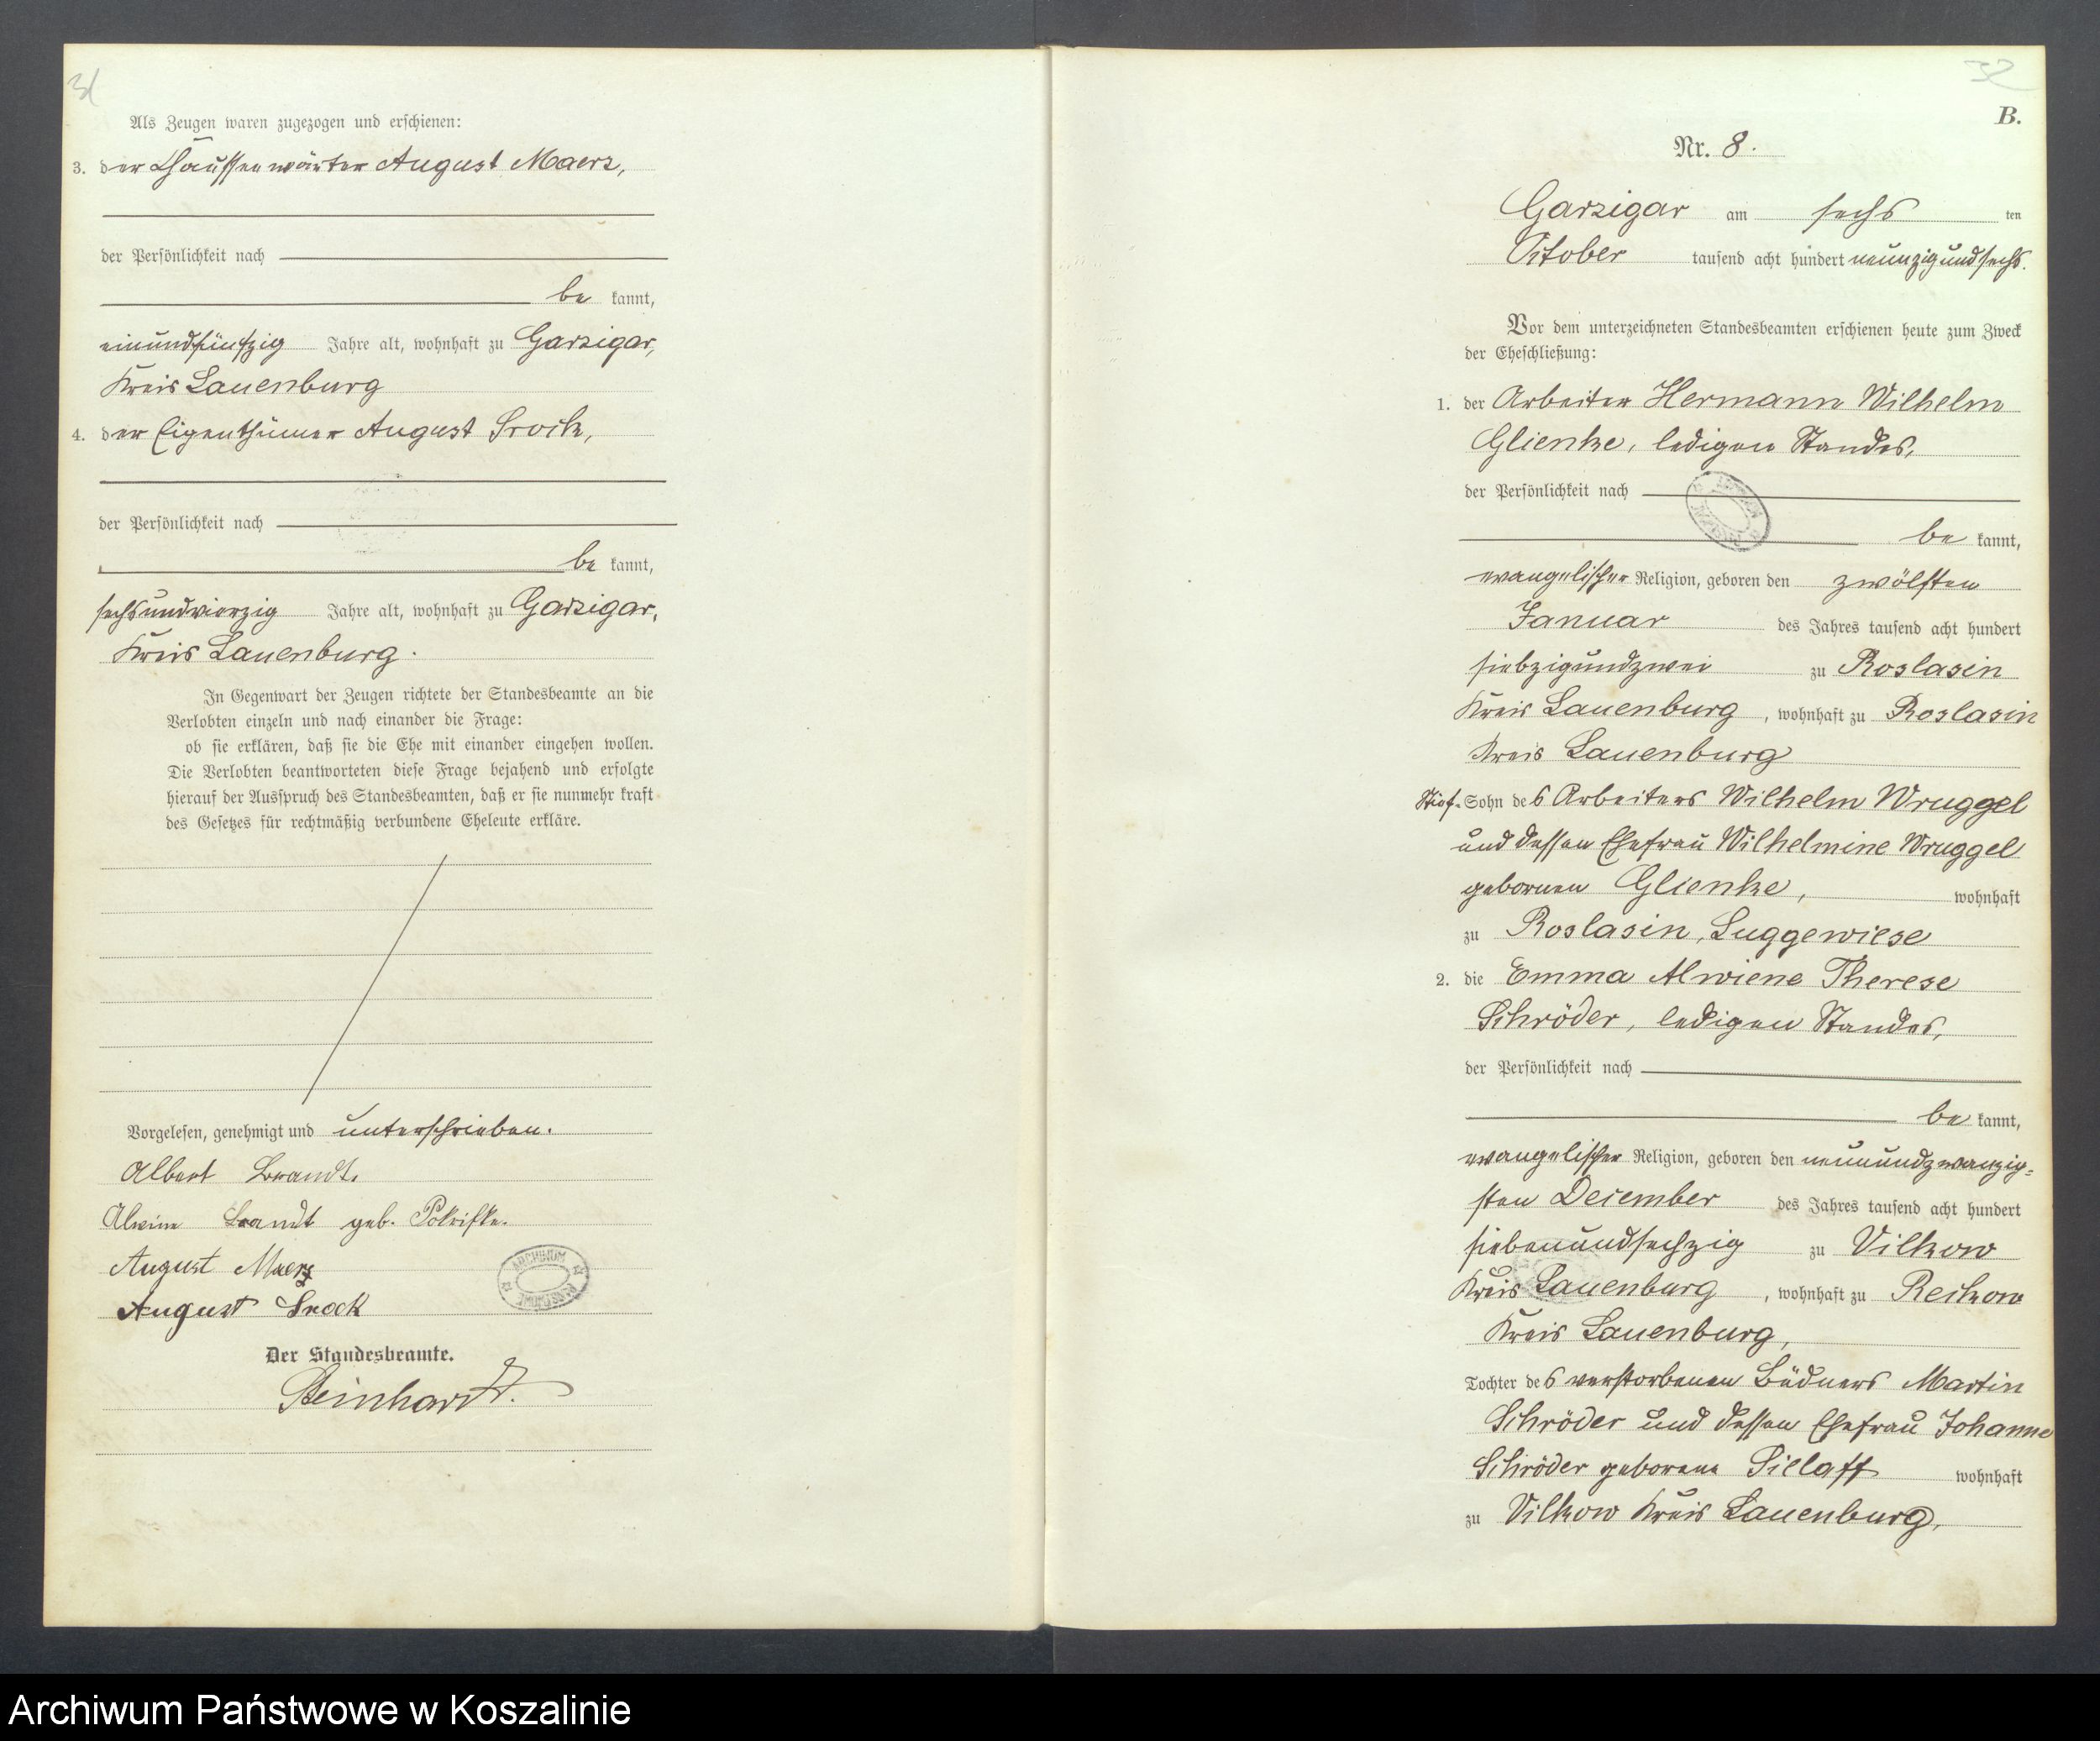 31
Als Zeugen waren zugezogen und erschienen:
3. der Chausseewärter August Maerz,
der Persönlichkeit nach
be kannt,
einundfünfzig Jahre alt, wohnhaft zu Garzigar,
Kreis Lauenburg
4. der Eigenthümer August Srock,
der Persönlichkeit nach
be kannt,
sechsundvierzig Jahre alt, wohnhaft zu Garzigar,
Kreis Lauenburg.
In Gegenwart der Zeugen richtete der Standesbeamte an die
Verlobten einzeln und nach einander die Frage:
ob sie erklären, daß sie die Ehe mit einander eingehen wollen.
Die Verlobten beantworteten diese Frage bejahend und erfolgte
hierauf der Ausspruch des Standesbeamten, daß er sie nunmehr kraft
des Gesetzes für rechtmäßig verbundene Eheleute erkläre.
Vorgelesen, genehmigt und unterschrieben.
Albert Brandt.
Alwine Brandt geb.
August Maerz
August Srock
Der Standesbeamte.
Reinhardt.
32
B.
Nr. 8.
Garzigar am sechs ten
October tausend acht hundert neunzig und sechs.
Vor dem unterzeichneten Standesbeamten erschienen heute zum Zweck
der Eheschließung:
1. der Arbeiter Hermann Wilhelm
Glienke, ledigen Standes,
der Persönlichkeit nach
be kannt,
evangelischer Religion, geboren den zwölften
Januar des Jahres tausend acht hundert
siebzigundzwei zu Roslasin
Kreis Lauenburg, wohnhaft zu Roslasin
Kreis Lauenburg
Stief-Sohn des Arbeiters Wilhelm Wruggel
und dessen Ehefrau Wilhelmine Wruggel
gebornen Glienke, wohnhaft
zu Roslasin, Luggewiese
2. die Emma Alwiene Therese
Schröder, ledigen Standes,
der Persönlichkeit nach
be kannt,
evangelischer Religion, geboren den neunundzwanzig=
sten December des Jahres tausend acht hundert
siebenundsechzig zu Vilkow
Kreis Lauenburg, wohnhaft zu Reckow
Kreis Lauenburg,
Tochter des verstorbenen Büdners Martin
Schröder und dessen Ehefrau Johanne
Schröder geborene Pillaff wohnhaft
zu Vilkow Kreis Lauenburg.
Archiwum Państwowe w Koszalinie